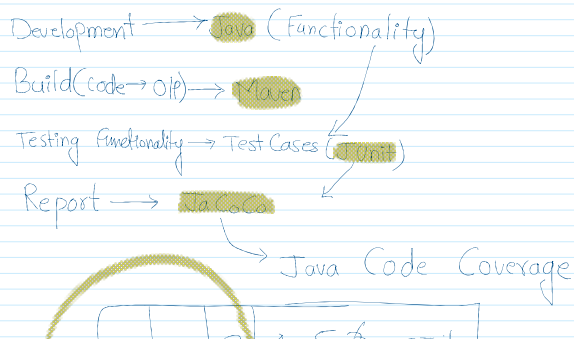 Development → Java (Functionality)
Build(code→O/P) → Maven
Testing Functionality → Test Cases (JUnit)
Report → JaCoCo
Java Code Coverage